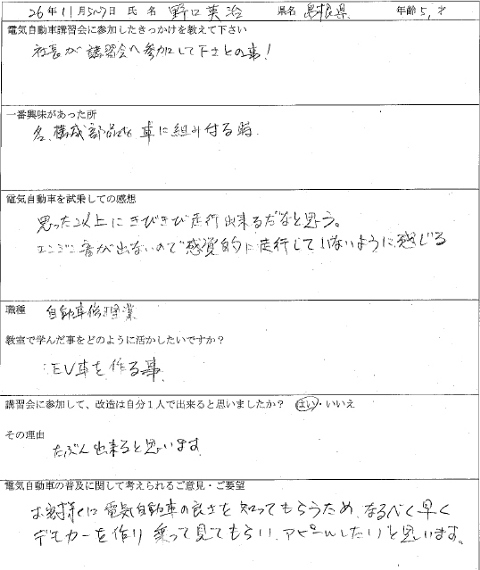 26年11月5~7日 氏名 野口英治 県名 島根県 年齢 5,才
電気自動車講習会に参加したきっかけを教えて下さい
社長が講習会へ参加して下さとの事!
一番興味があった所
各、構成部品を車に組み付る時
電気自動車を試乗しての感想
思った以上にきびきび走行出来るだなと思う。
エンジン音が出ないので感覚的に走行していないように感じる
職種 自動車修理業
教室で学んだ事をどのように活かしたいですか?
EV車を作る事
講習会に参加して、改造は自分1人で出来ると思いましたか? はい・いいえ
その理由
たぶん出来ると思います
電気自動車の普及に関して考えられるご意見・ご要望
お客様に電気自動車の良さを知ってもらうため、なるべく早く
デモカーを作り乗って見てもらい、アピールしたいと思います。